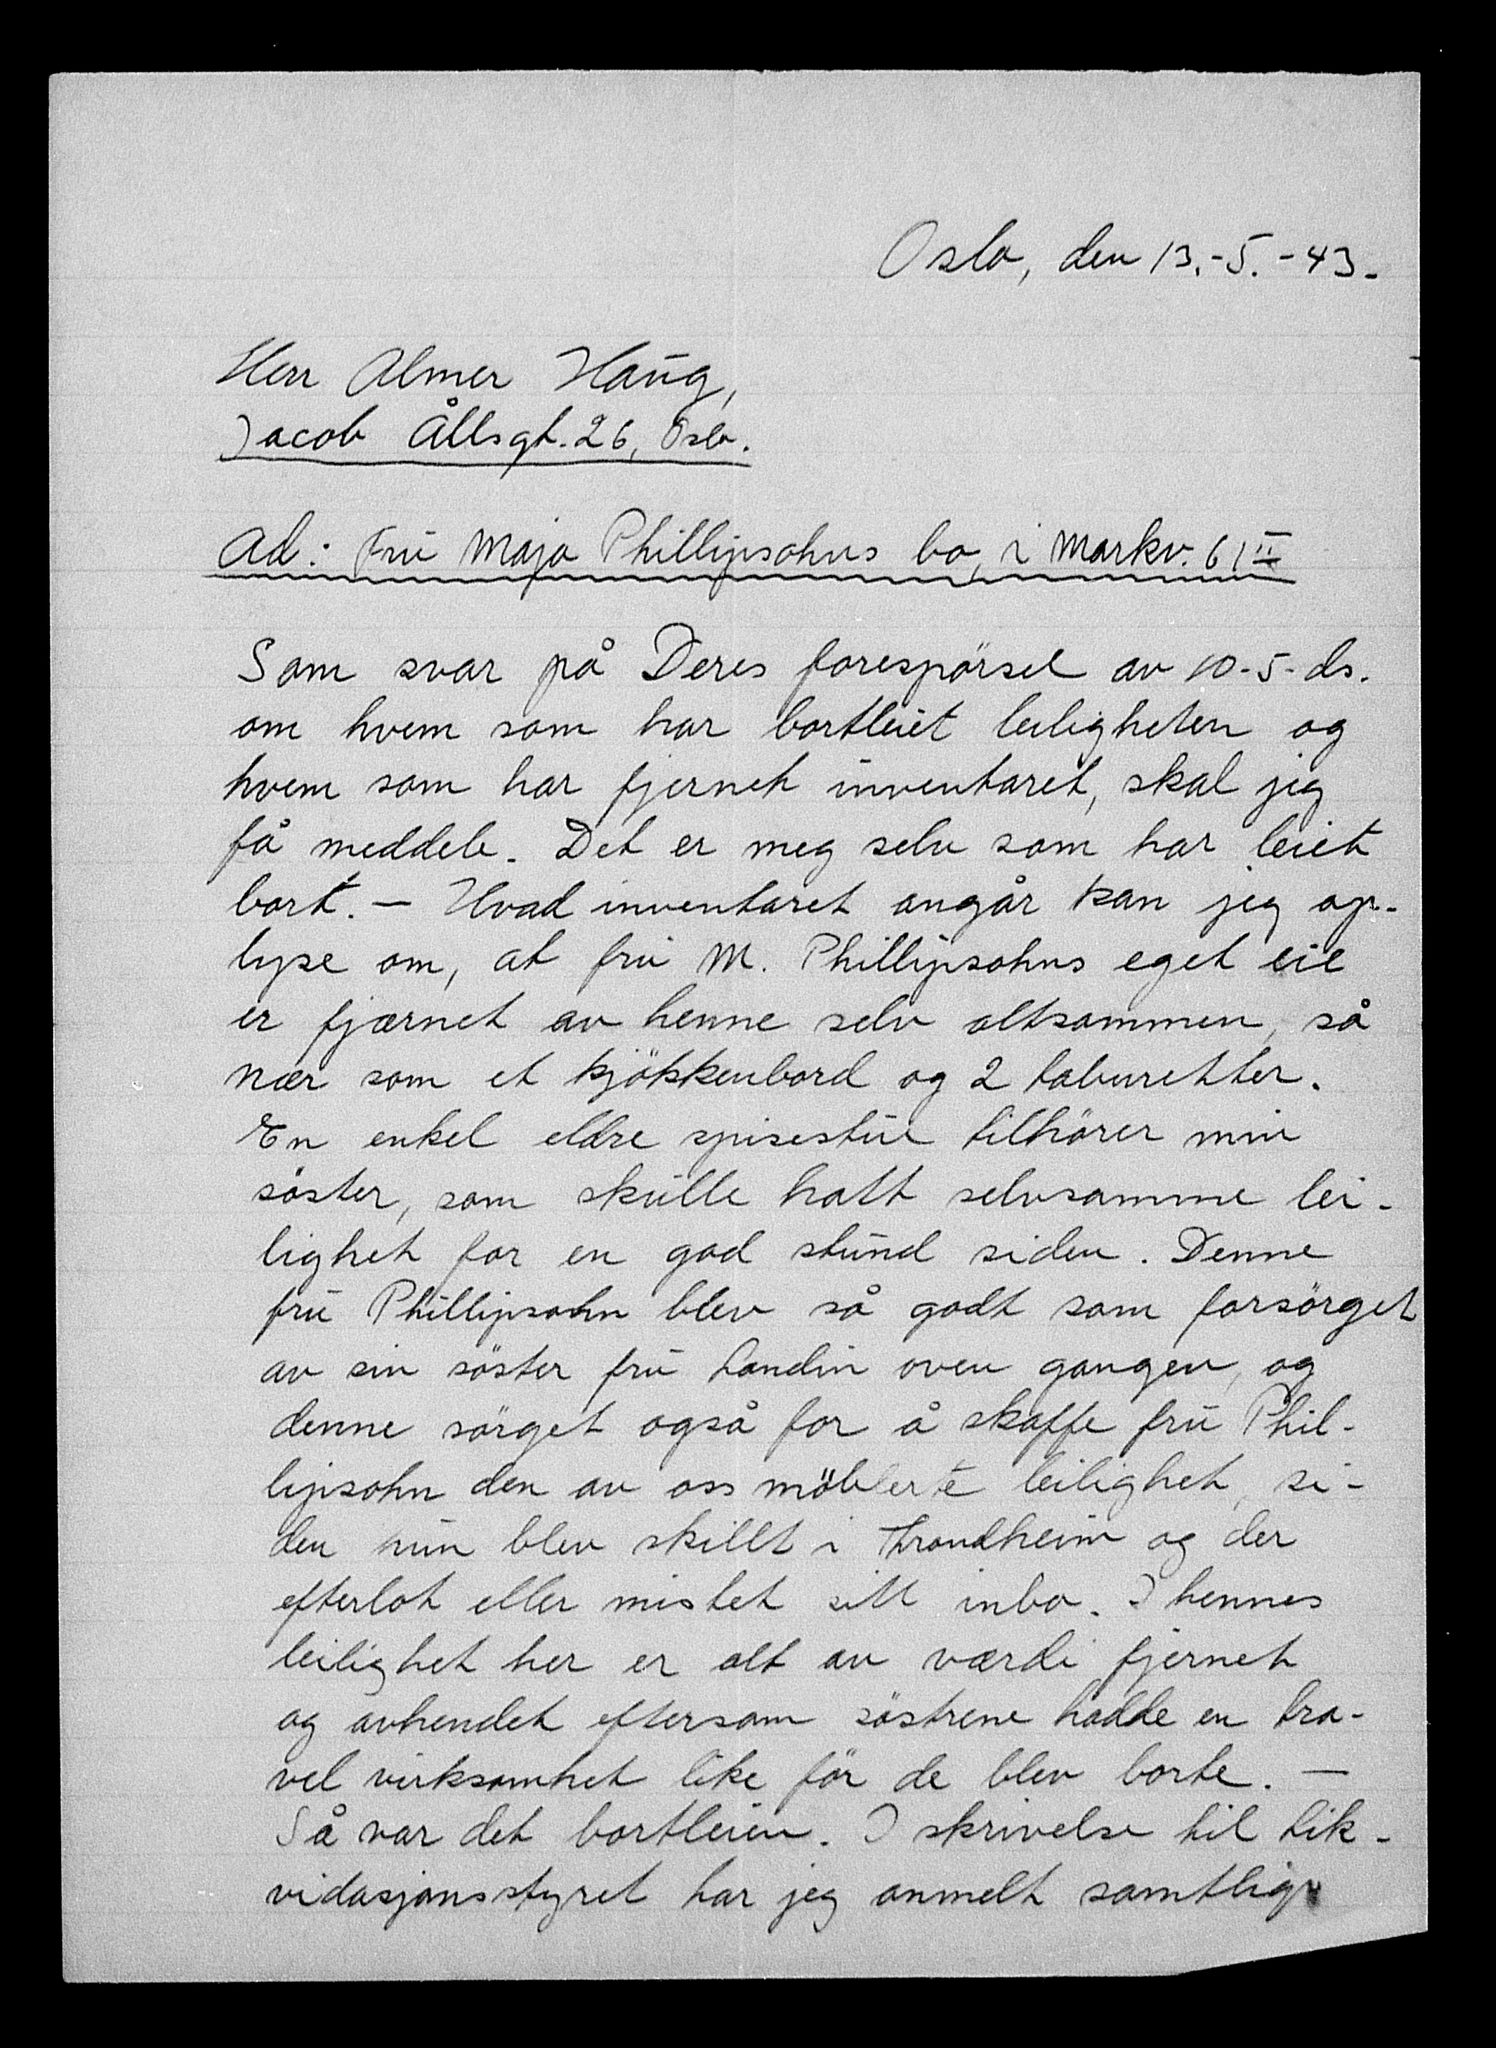 Oslo, den 13.-5.-43.
Herr Almer Haug,
Jacob Ållsgt. 26, Oslo.
Ad: Fru Maja Phillipsohns bo, i Markv. 61 II
Som svar på Deres forespörsel av 10-5-ds.
om hvem som har bortleiet leiligheten og
hvem som har fjernet inventaret, skal jeg
få meddele. Det er meg selv som har leiet
bort. — Hvad inventaret angår kan jeg op-
lyse om, at fru M. Phillipsohns eget eie
er fjærnet av henne selv altsammen, så
nær som et kjökkenbord og 2 taburetter.
En enkel eldre spisestue tilhörer min
söster, som skulle hatt selvsamme lei-
lighet for en god stund siden. Denne
fru Phillipsohn blev så godt som forsörget
av sin söster fru Landin oven gangen, og
denne sörget også for å skaffe fru Phil-
lipsohn den av oss möblerte leilighet, si-
den hun blev skillt i Trondheim og der
efterlot eller mistet sitt inbo. I hennes
leilighet her er alt av værdi fjernet
og avhendet eftersom söstrene hadde en tra-
vel virksomhet like för de blev borte. —
Så var det bortleien. I skrivelse til Lik-
vidasjonsstyret har jeg anmelt samtlige